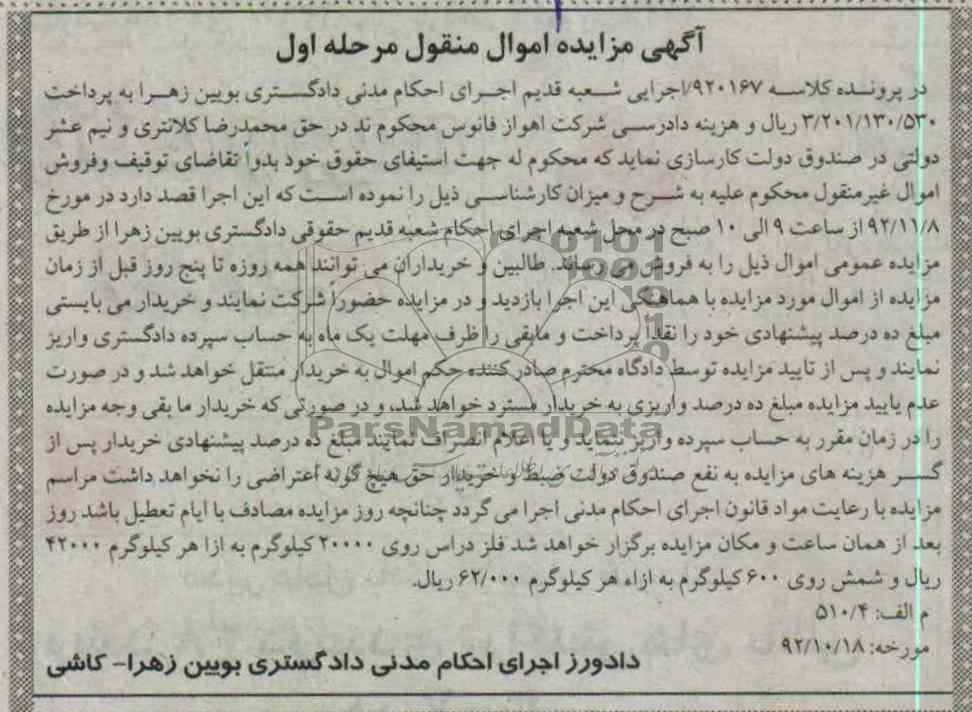 آگهی مزایده اموال منقول مرحله اول
در پرونده کلاسه ۹۲۰۱۶۷/اجرایی شعبه قدیم اجرای احکام مدنی دادگستری بویین زهرا به پرداخت
۳/۲۰۱/۱۳۰/۵۳۰ ریال و هزینه دادرسی شرکت اهواز فانوس محکوم ند در حق محمدرضا کلانتری و نیم عشر
دولتی در صندوق دولت کارسازی نماید که محکوم له جهت استیفای حقوق خود بدواً تقاضای توقیف وفروش
اموال غیرمنقول محکوم علیه به شرح و میزان کارشناسی ذیل را نموده است که این اجرا قصد دارد در مورخ
۹۲/۱۱/۸ از ساعت ۹ الی ۱۰ صبح در محل شعبه اجرای احکام شعبه قدیم حقوقی دادگستری بویین زهرا از طریق
مزایده عمومی اموال ذیل را به فروش می رساند. طالبین و خریداران می توانند همه روزه تا پنج روز قبل از زمان
مزایده از اموال مورد مزایده با هماهنگی این اجرا بازدید و در مزایده حضوراً شرکت نمایند و خریدار می بایستی
مبلغ ده درصد پیشنهادی خود را نقداً پرداخت و مابقی را ظرف مهلت یک ماه به حساب سپرده دادگستری واریز
نمایند و پس از تایید مزایده توسط دادگاه محترم صادرکننده حکم اموال به خریدار منتقل خواهد شد و در صورت
عدم یایید مزایده مبلغ ده درصد واریزی به خریدار مسترد خواهد شد، و در صورتی که خریدار ما بقی وجه مزایده
را در زمان مقرر به حساب سپرده واریز ننماید و یا اعلام انصراف نمایند مبلغ ده درصد پیشنهادی خریدار پس از
کسر هزینه های مزایده به نفع صندوق دولت ضبط و خریدار حق هیچ گونه اعتراضی را نخواهد داشت مراسم
مزایده با رعایت مواد قانون اجرای احکام مدنی اجرا می گردد چنانچه روز مزایده مصادف با ایام تعطیل باشد روز
بعد از همان ساعت و مکان مزایده برگزار خواهد شد فلز دراس روی ۲۰۰۰۰ کیلوگرم به ازا هر کیلوگرم ۴۲۰۰۰
ریال و شمش روی ۶۰۰ کیلوگرم به ازاء هر کیلوگرم ۶۲/۰۰۰ ریال.
م الف: ۵۱۰/۴
مورخه: ۹۲/۱۰/۱۸
دادورز اجرای احکام مدنی دادگستری بویین زهرا- کاشی
ParsNamadData